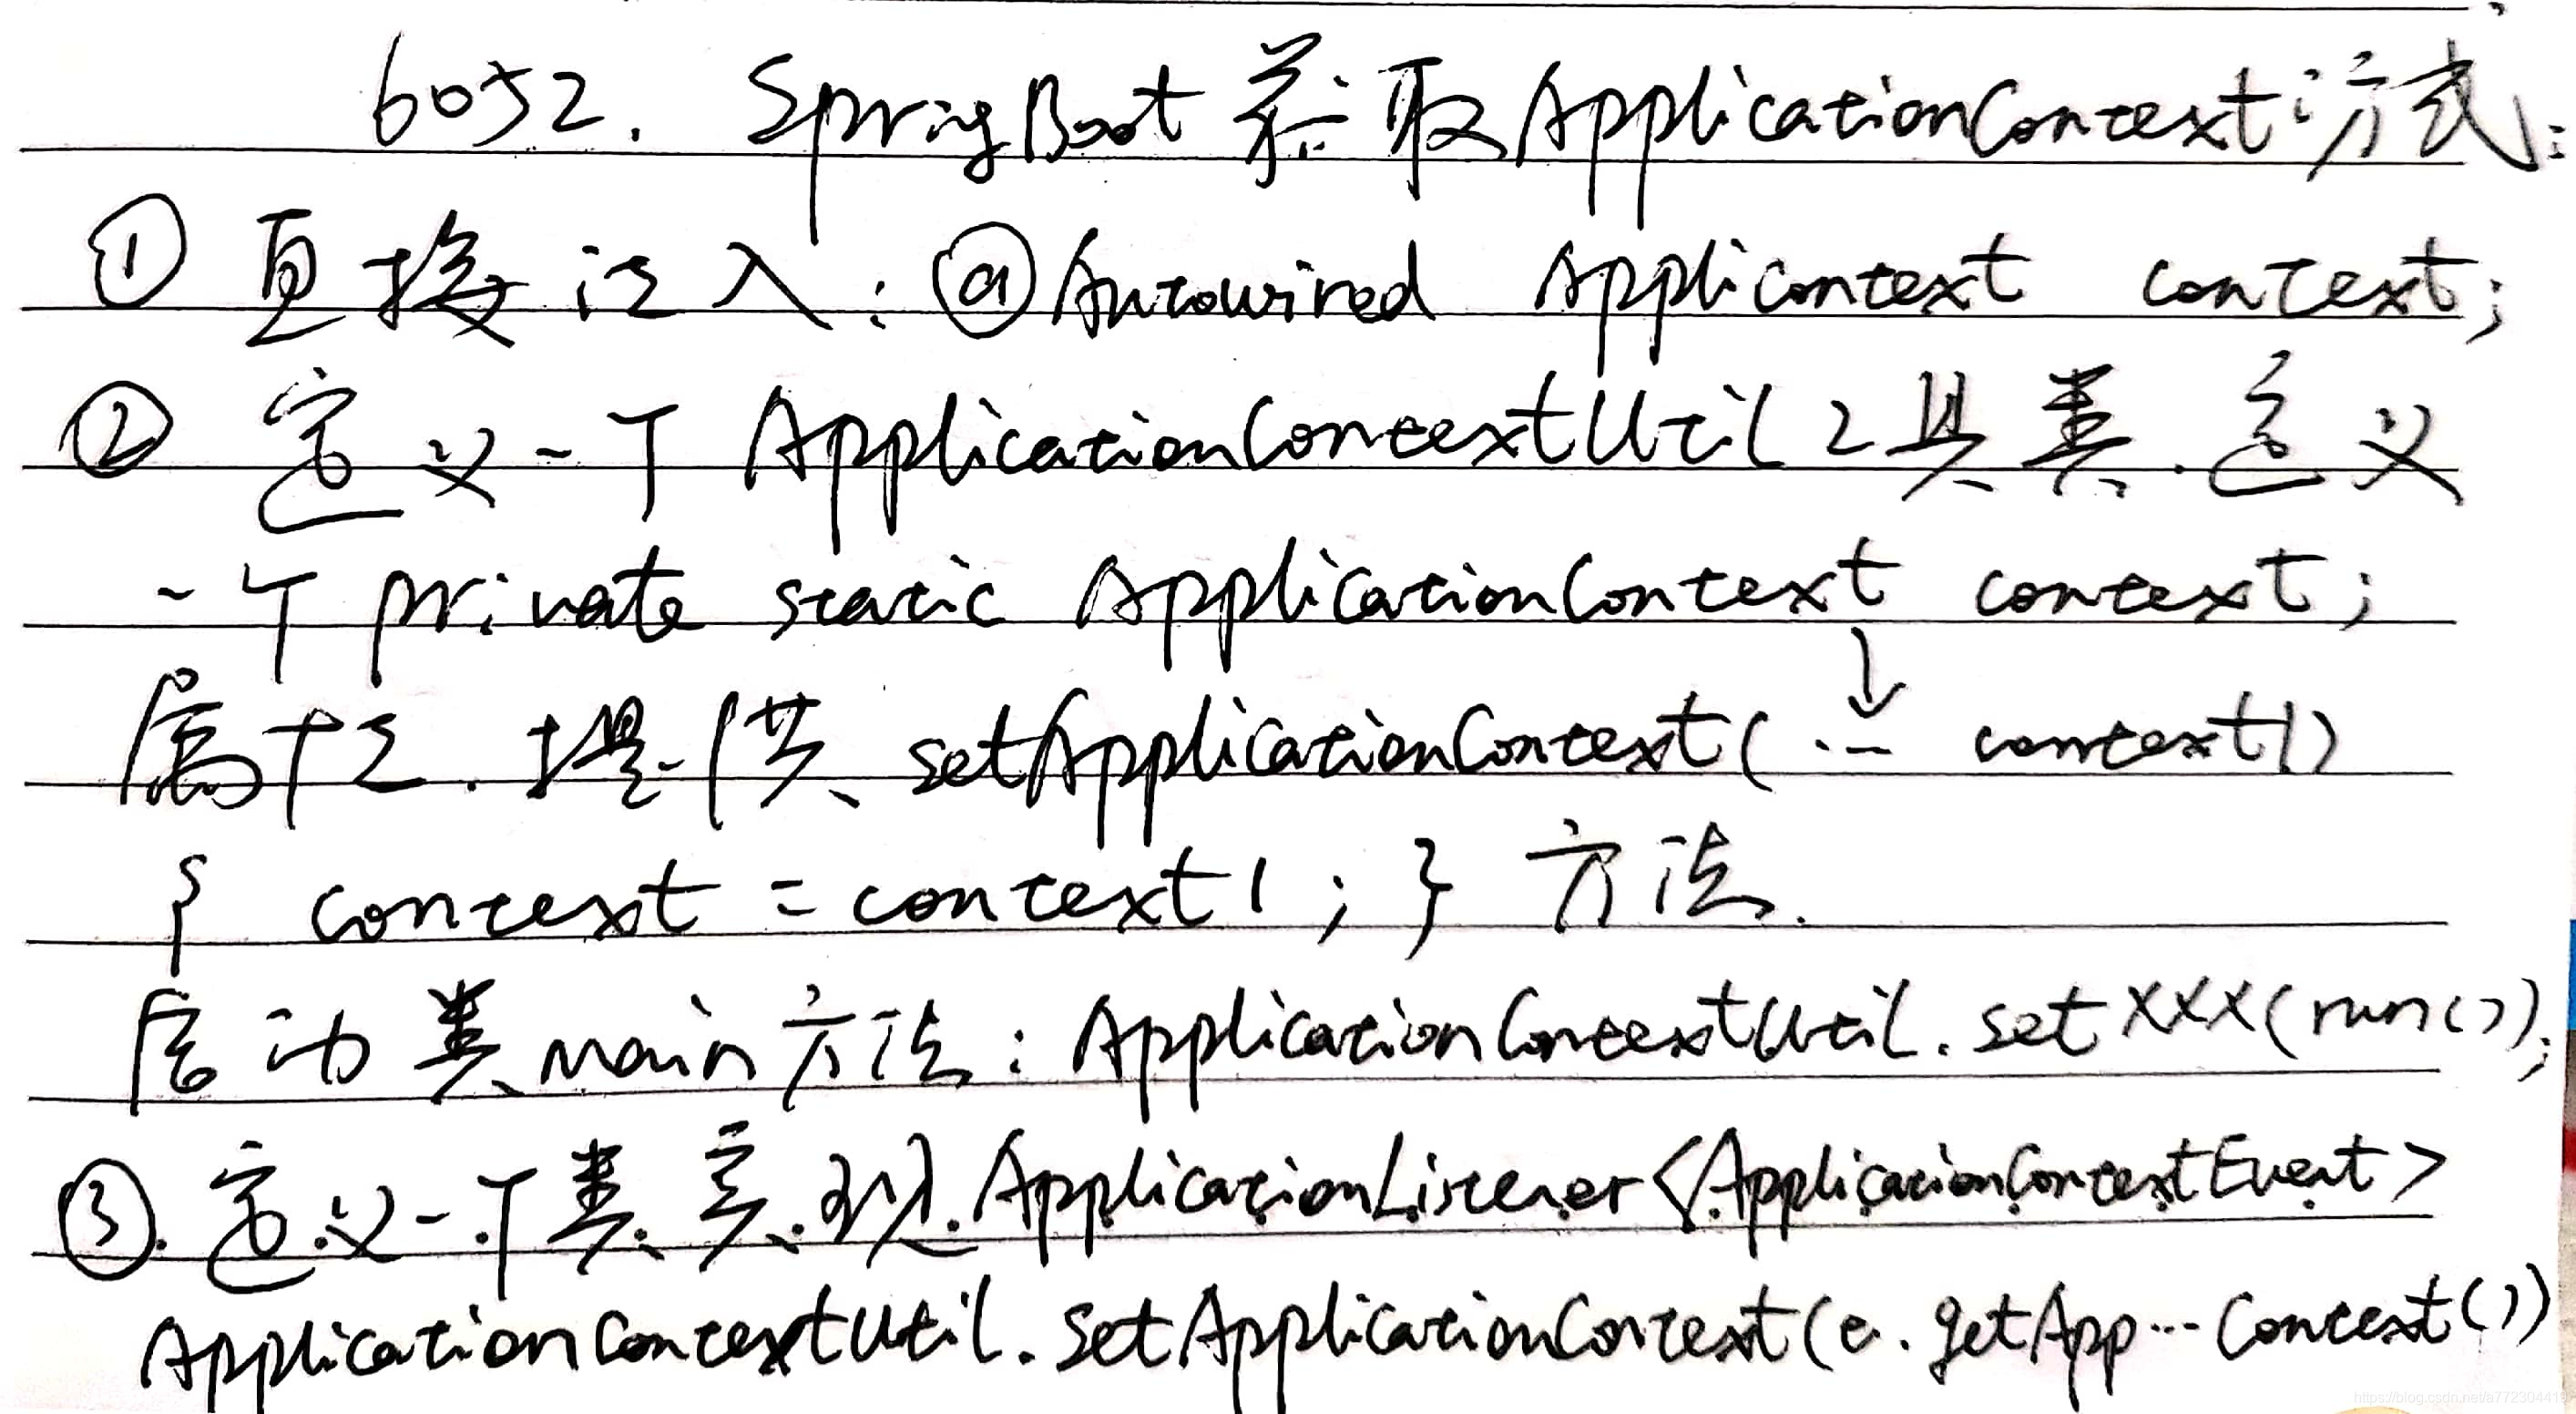 6052. SpringBoot 获取ApplicationContext方式:
① 直接注入: @Autowired Applicontext context;
② 定义一个 ApplicationContextUtil工具类.定义
一个 private static ApplicationContext context;
属性. 提供 setApplicationContext( ... context1)
{ context = context1; } 方法.
启动类main方法: ApplicationContextUtil.setXXX(run());
③. 定义一个类实现ApplicationListener<ApplicationContextEvent>
ApplicationContextUtil.setApplicationContext(e.getApp...Context())